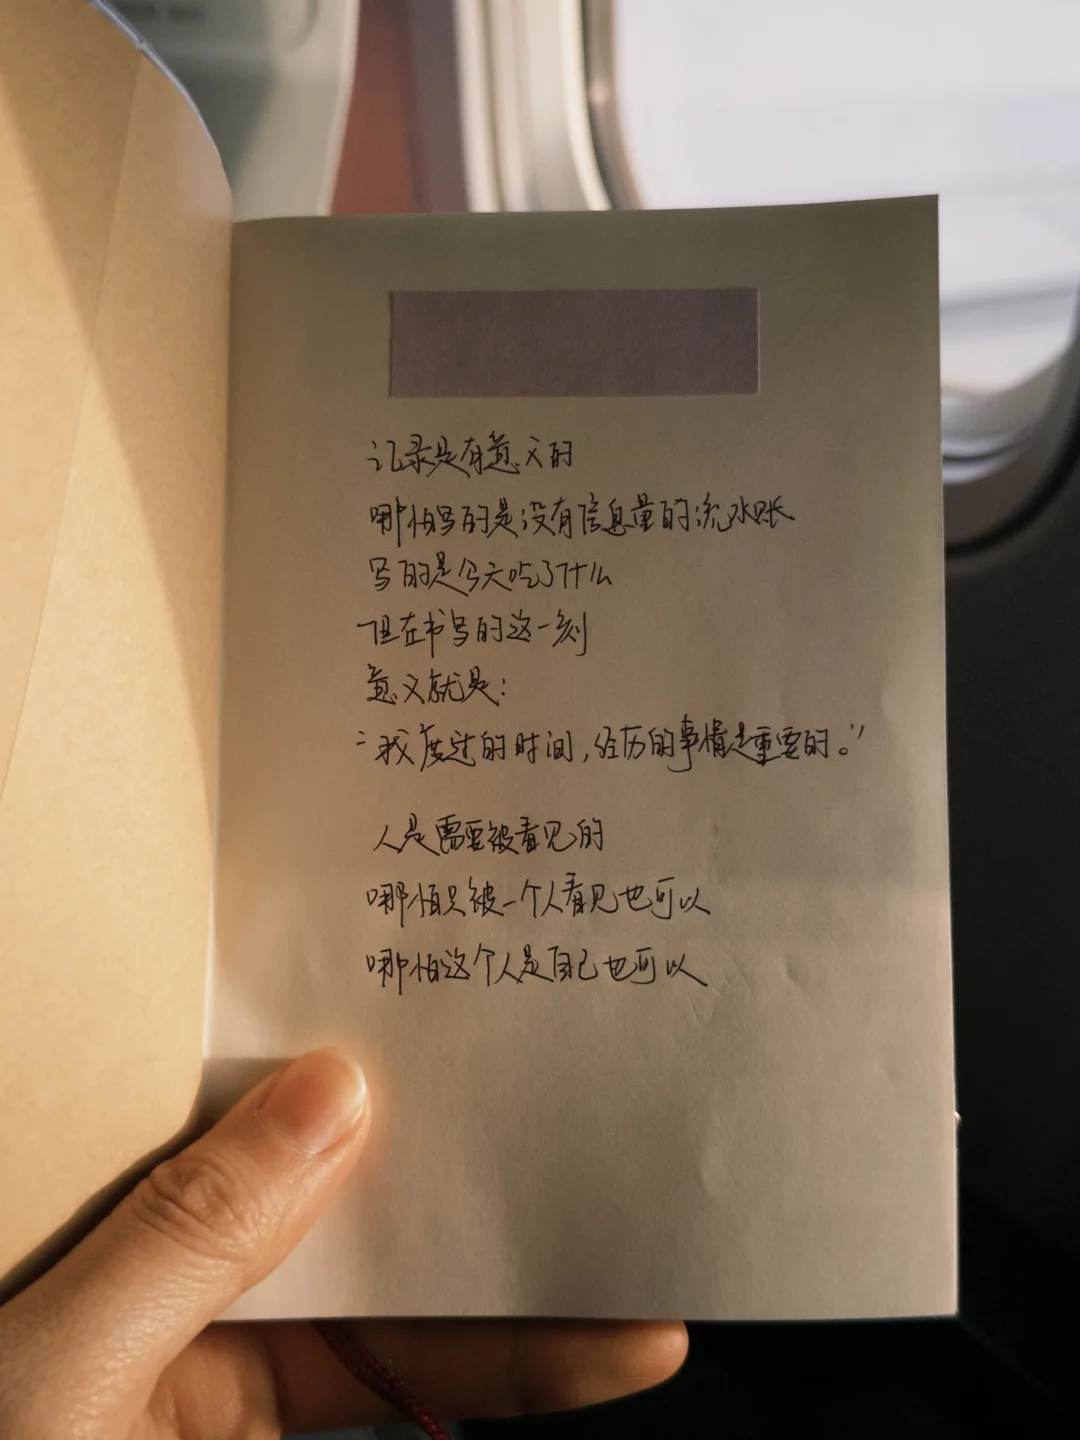 记录是有意义的
哪怕写的是没有信息量的流水账
写的是今天吃了什么
但在书写的这一刻
意义就是：
“我度过的时间，经历的事情是重要的。”
人是需要被看见的
哪怕只被一个人看见也可以
哪怕这个人是自己也可以